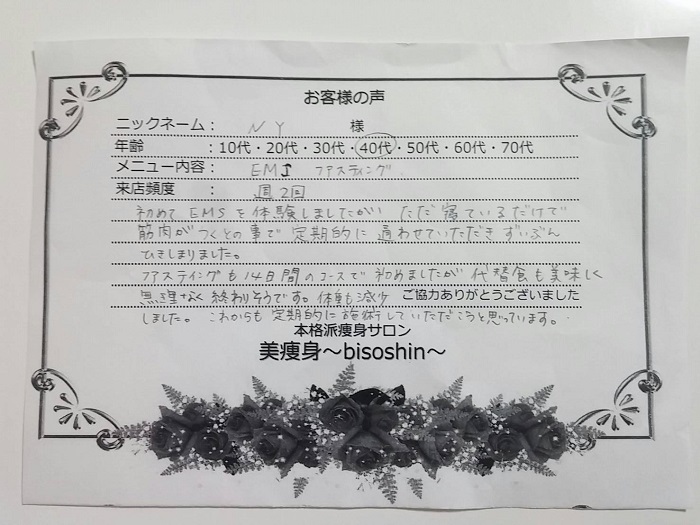 お客様の声
ニックネーム： NY 様
年齢 ：10代・20代・30代・40代・50代・60代・70代
メニュー内容： EMS ファスティング
来店頻度 ： 週2回
初めて EMSを体験しましたが、ただ寝ているだけで
筋肉がつくとの事で定期的に通わせていただきずいぶん
ひきしまりました。
ファスティングも14日間のコースで初めましたが代替食も美味しく
無理なく終わりそうです。体重も減少 ご協力ありがとうございました
しました。これからも定期的に施術していただこうと思っています。
本格派痩身サロン
美痩身〜bisoshin〜